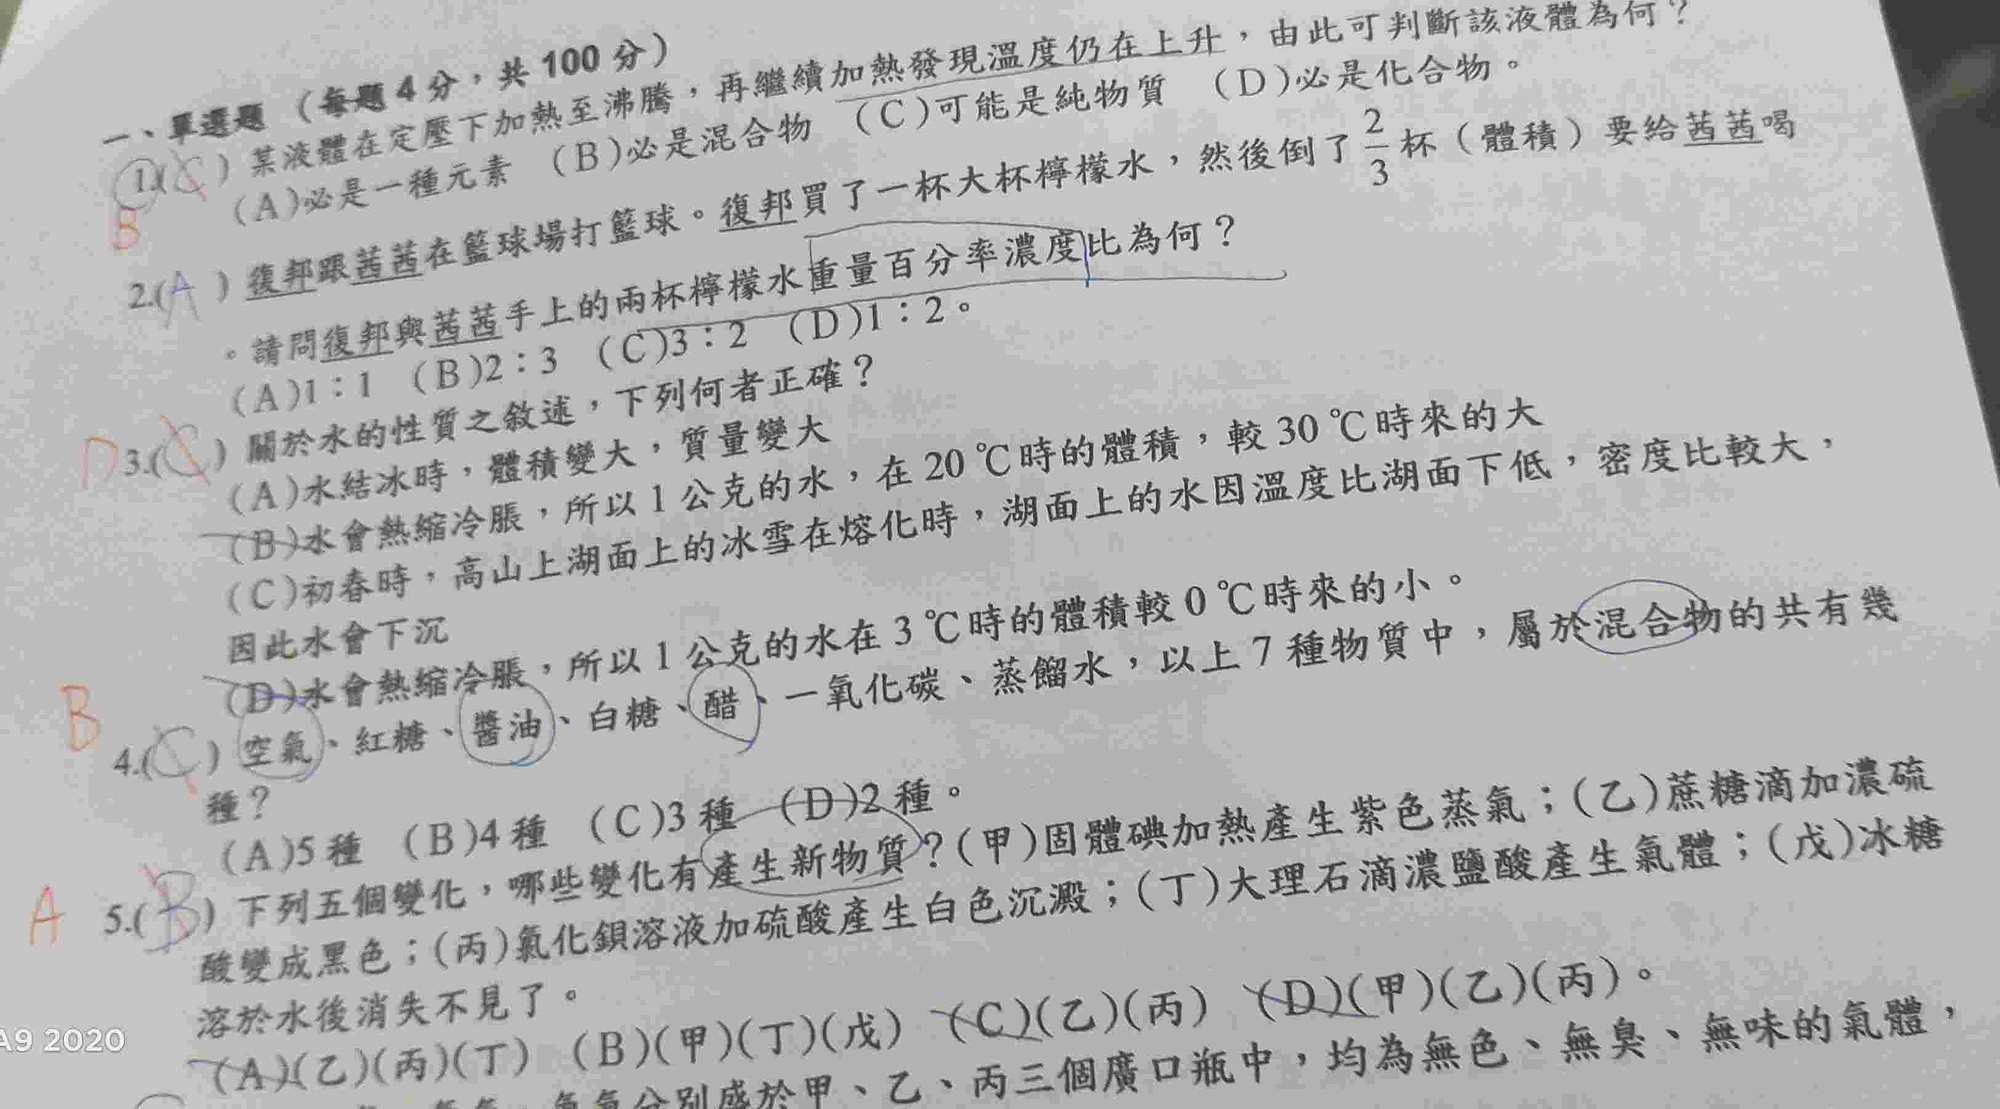 一、單選題（每題4分，共100分）
B 1.(C）某液體在定壓下加熱至沸騰，再繼續加熱發現溫度仍在上升，由此可判斷該液體為何？
(A)必是一種元素 (B)必是混合物 (C)可能是純物質 (D)必是化合物。
2.(A）復邦跟茜茜在籃球場打籃球。復邦買了一杯大杯檸檬水，然後倒了2/3杯（體積）要給茜茜喝
。請問復邦與茜茜手上的兩杯檸檬水重量百分率濃度比為何？
(A)1：1 (B)2：3 (C)3：2 (D)1：2。
D 3.(C）關於水的性質之敘述，下列何者正確？
(A)水結冰時，體積變大，質量變大
(B)水會熱縮冷脹，所以1公克的水，在20℃時的體積，較30℃時來的大
(C)初春時，高山上湖面上的冰雪在熔化時，湖面上的水因溫度比湖面下低，密度比較大，
因此水會下沉
(D)水會熱縮冷脹，所以1公克的水在3℃時的體積較0℃時來的小。
B 4.(C）空氣、紅糖、醬油、白糖、醋、一氧化碳、蒸餾水，以上7種物質中，屬於混合物的共有幾
種？
(A)5種 (B)4種 (C)3種 (D)2種。
A 5.(B）下列五個變化，哪些變化有產生新物質？(甲)固體碘加熱產生紫色蒸氣；(乙)蔗糖滴加濃硫
酸變成黑色；(丙)氯化鋇溶液加硫酸產生白色沉澱；(丁)大理石滴濃鹽酸產生氣體；(戊)冰糖
溶於水後消失不見了。
(A)(乙)(丙)(丁) (B)(甲)(丁)(戊) (C)(乙)(丙) (D)(甲)(乙)(丙)。
分別盛於甲、乙、丙三個廣口瓶中，均為無色、無臭、無味的氣體，
A9 2020